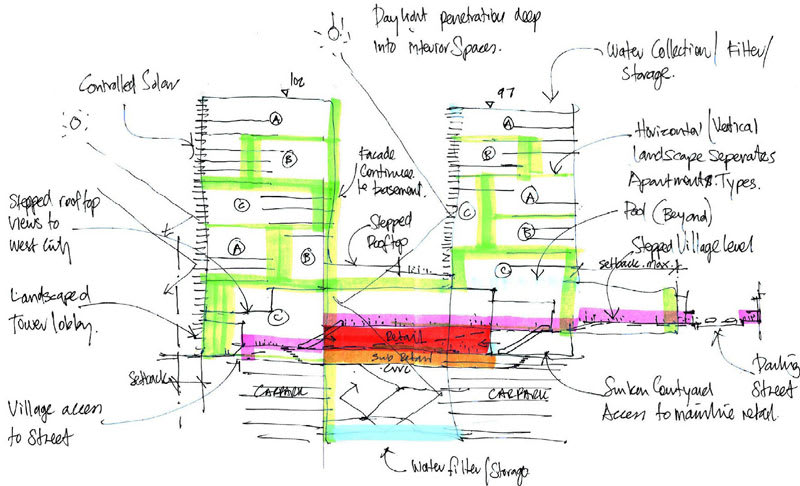 Daylight penetration deep
into interior Spaces.
Water Collection / Filter /
Storage.
Controlled Solar
102
97
A
A
B
B
Horizontal / Vertical
Landscape Seperates
Apartments Types.
Facade
Continues
to basement.
C
A
C
Stepped rooftop
views to
West City
Stepped
Rooftop
Pool (Beyond)
A
B
B
Stepped Village level
setback max.
C
Landscaped
Tower lobby.
C
Retail
Sub Retail
Civic
Darling
Street
Setback
CARPARK
CARPARK
Sunken Courtyard
Access to mainline retail.
Village access
to Street
Water filter / Storage